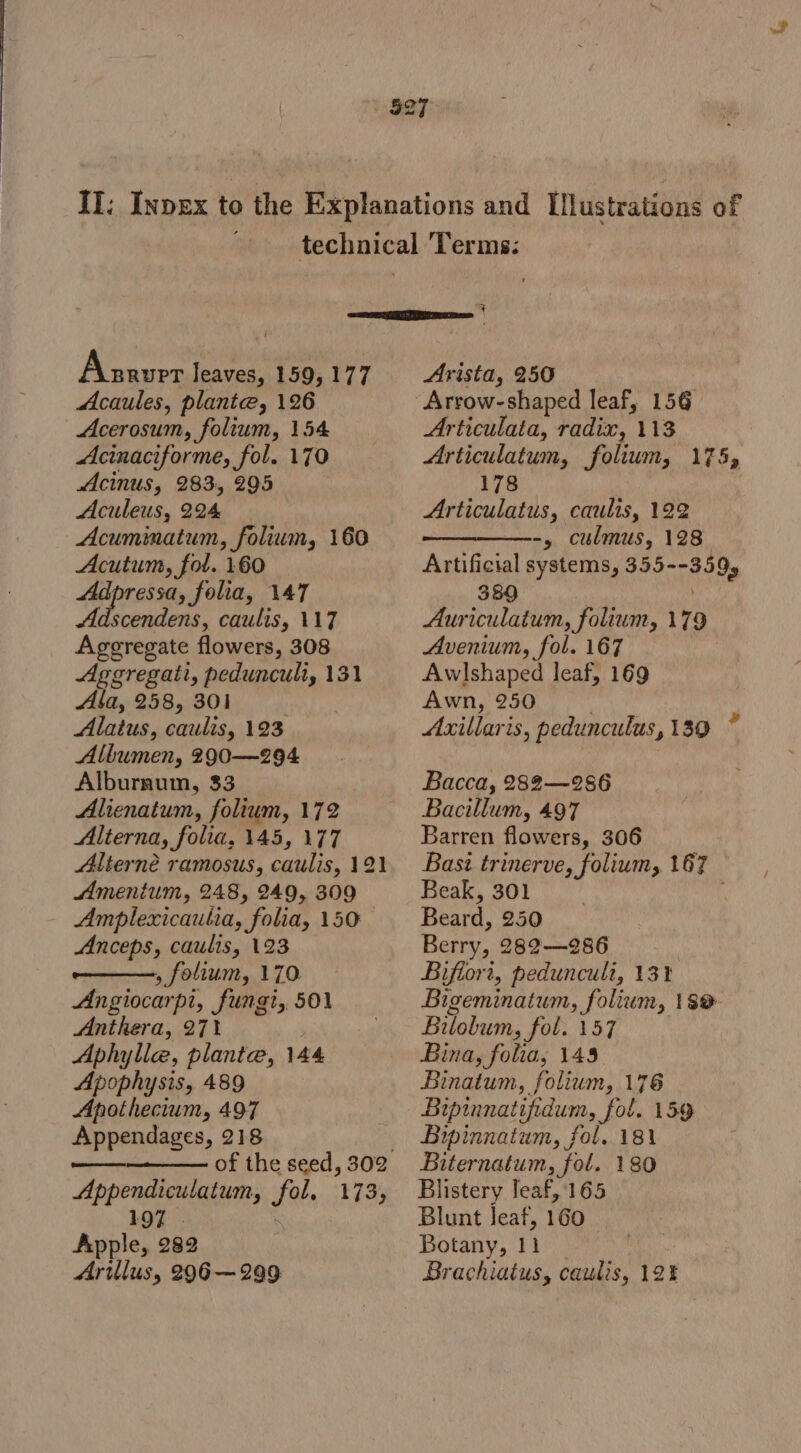 527
II. INDEX to the Explanations and Illustrations of
technical Terms.
ABRUPT leaves, 159, 177
Acaules, plantæ, 126
Acerosum, folium, 154
Acinaciforme, fol. 170
Acinus, 283, 295
Aculeus, 224
Acuminatum, folium, 160
Acutum, fol. 160
Adpressa, folia, 147
Adscendens, caulis, 117
Aggregate flowers, 308
Aggregati, pedunculi, 131
Ala, 258, 301
Alatus, caulis, 123
Albumen, 290—294
Alburnum, 33
Alienatum, folium, 172
Alterna, folia, 145, 177
Alternè ramosus, caulis, 121
Amentum, 248, 249, 309
Amplexicaulia, folia, 150
Anceps, caulis, 123
———, folium, 170
Angiocarpi, fungi, 501
Anthera, 271
Aphyllæ, plantæ, 144
Apophysis, 489
Apothecium, 497
Appendages, 218
———— of the seed, 302
Appendiculatum, fol. 173,
197
Apple, 282
Arillus, 296—299
Arista, 250
Arrow-shaped leaf, 156
Articulata, radix, 113
Articulatum, folium, 175,
178
Articulatus, caulis, 122
————-, culmus, 128
Artificial systems, 355--359,
389
Auriculatum, folium, 179
Avenium, fol. 167
Awlshaped leaf, 169
Awn, 250
Axillaris, pedunculus, 130
Bacca, 282—286
Bacillum, 497
Barren flowers, 306
Basi trinerve, folium, 167
Beak, 301
Beard, 250
Berry, 282—286
Biflori, pedunculi, 131
Bigeminatum, folium, 180
Bilobum, fol. 157
Bina, folia, 145
Binatum, folium, 176
Bipinnatifidum, fol. 159
Bipinnatum, fol. 181
Biternatum, fol. 180
Blistery leaf, 165
Blunt leaf, 160
Botany, 11
Brachiatus, caulis, 121